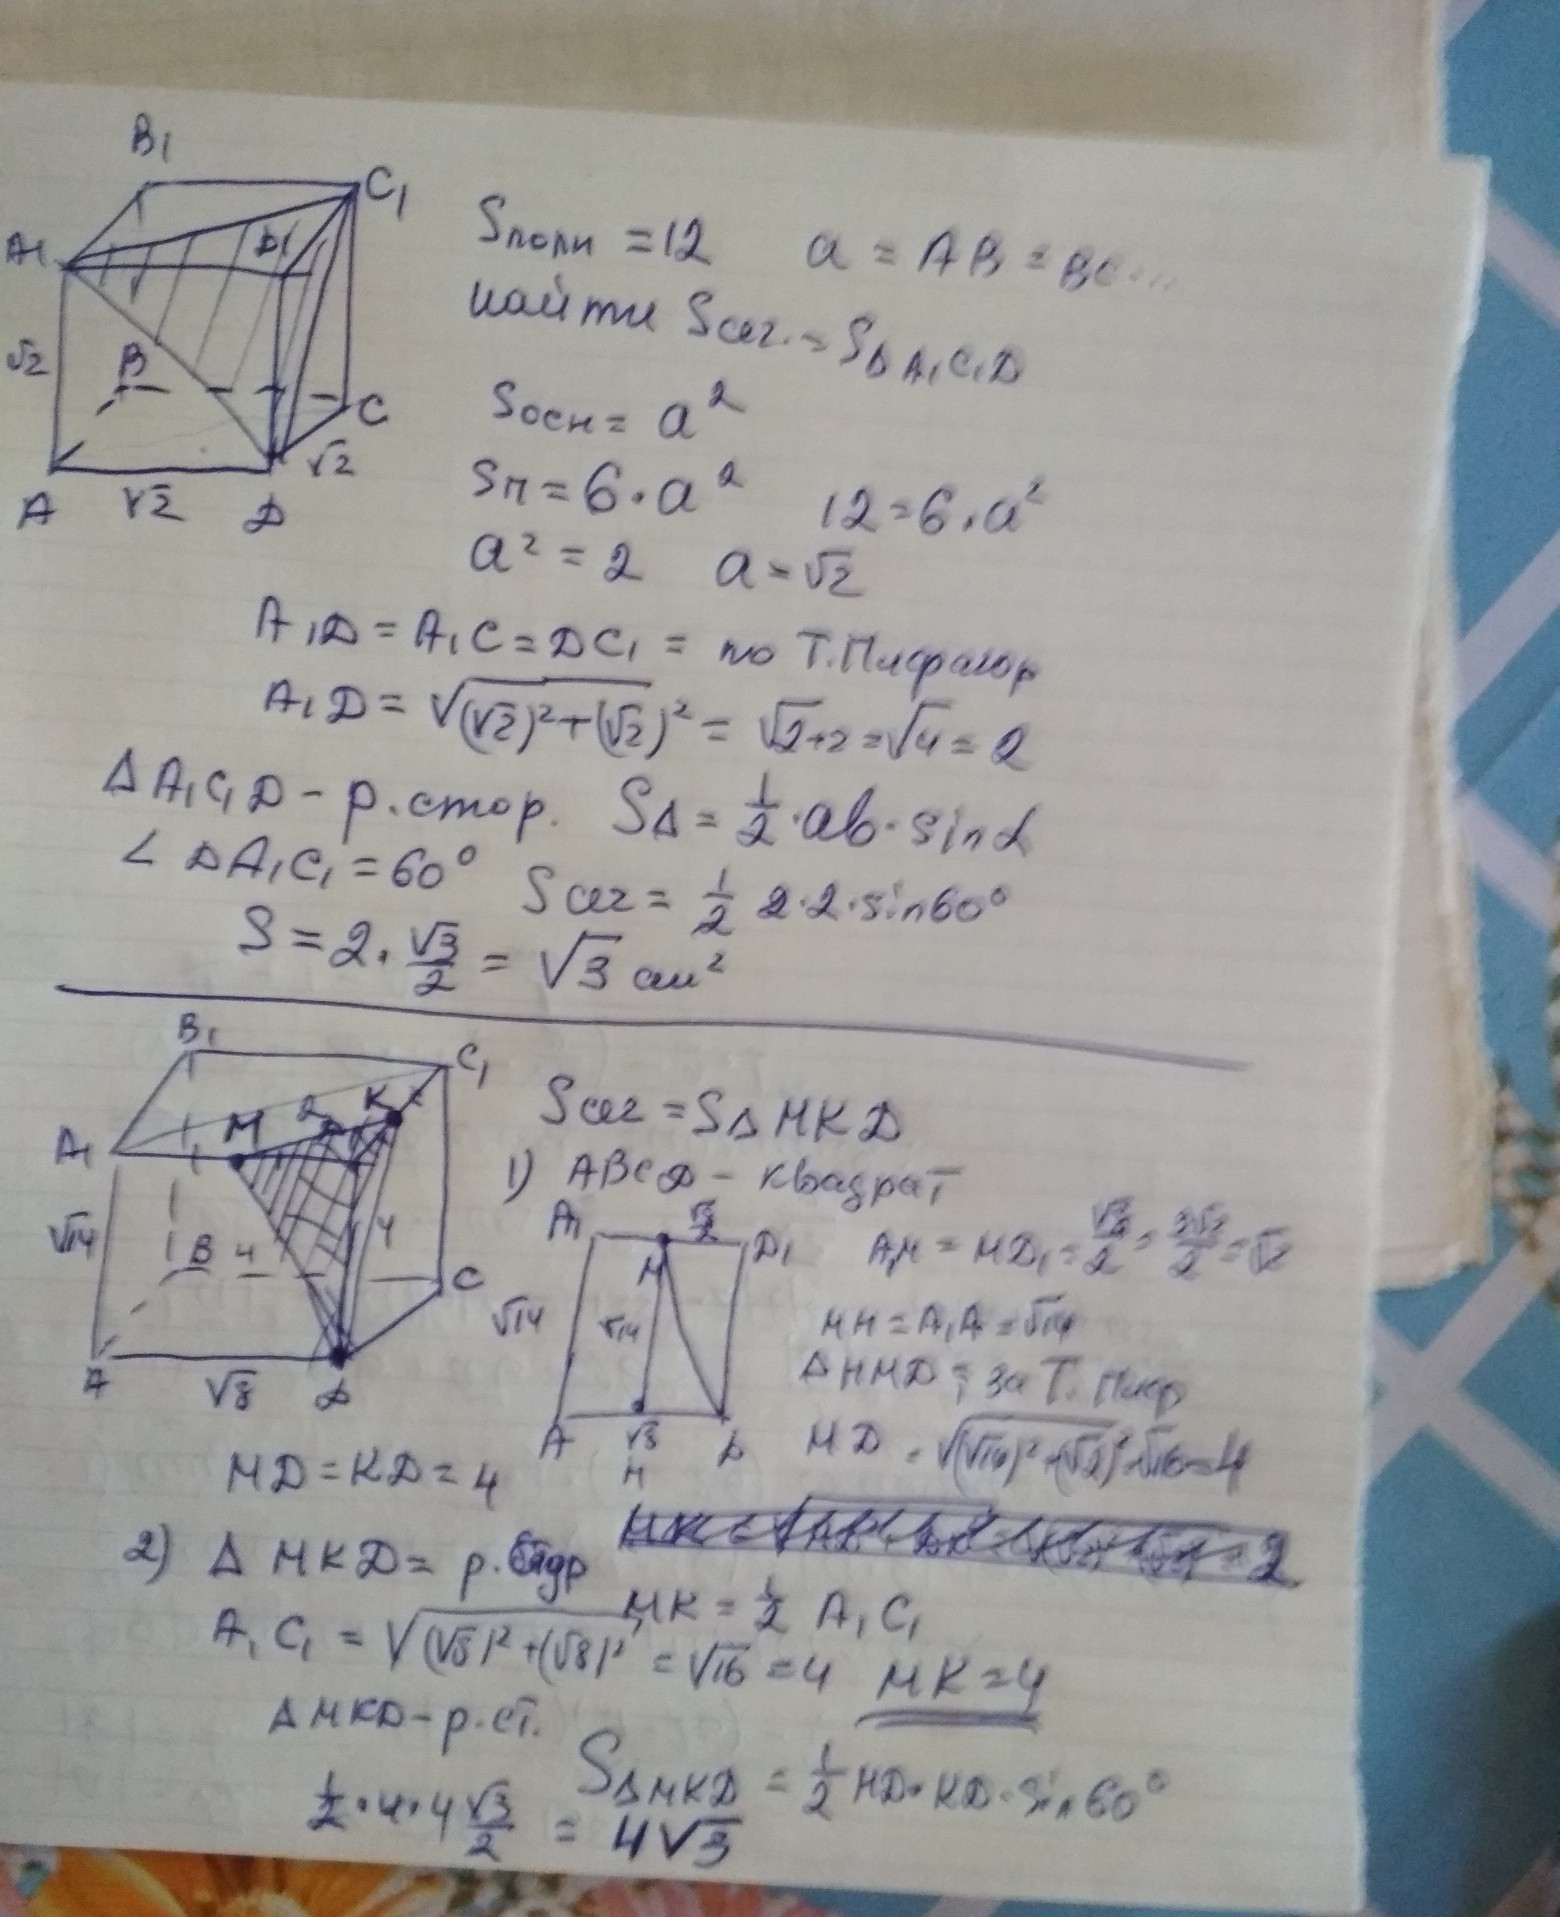 B₁
C₁
A₁
D₁
√2
B
C
√2
A
√2
D
Sполн = 12 a = AB = BC...
найти Sсеч. = S△A₁C₁D
Sосн = a²
Sп = 6·a² 12 = 6·a²
a² = 2 a = √2
A₁D = A₁C = DC₁ = по Т.Пифагор
A₁D = √(√2)²+(√2)² = √2+2 = √4 = 2
△A₁C₁D - р.стор. S△ = 1/2·ab·sinα
∠DA₁C₁ = 60° Sсеч = 1/2 2·2·sin60°
S = 2·√3/2 = √3 см²
B₁
C₁
A₁
M
2
K
√14
B
4
4
C
A
√8
D
Sсеч = S△MKD
1) ABCD - квадрат
A₁
D₁
M
√14
√14
A
H
A₁M = MD₁ = √8/2 = 2√2/2 = √2
MH = A₁A = √14
△HMD; за Т. Пиф
MD = √(√14)²+(√2)² = √16 = 4
MD = KD = 4
2) △MKD = р.
MK = 1/2 A₁C₁
A₁C₁ = √(√8)²+(√8)² = √16 = 4 MK = 4
△MKD - р.ст.
S△MKD = 1/2 MD·KD·Sin60°
1/2·4·4 √3/2 = 4√3